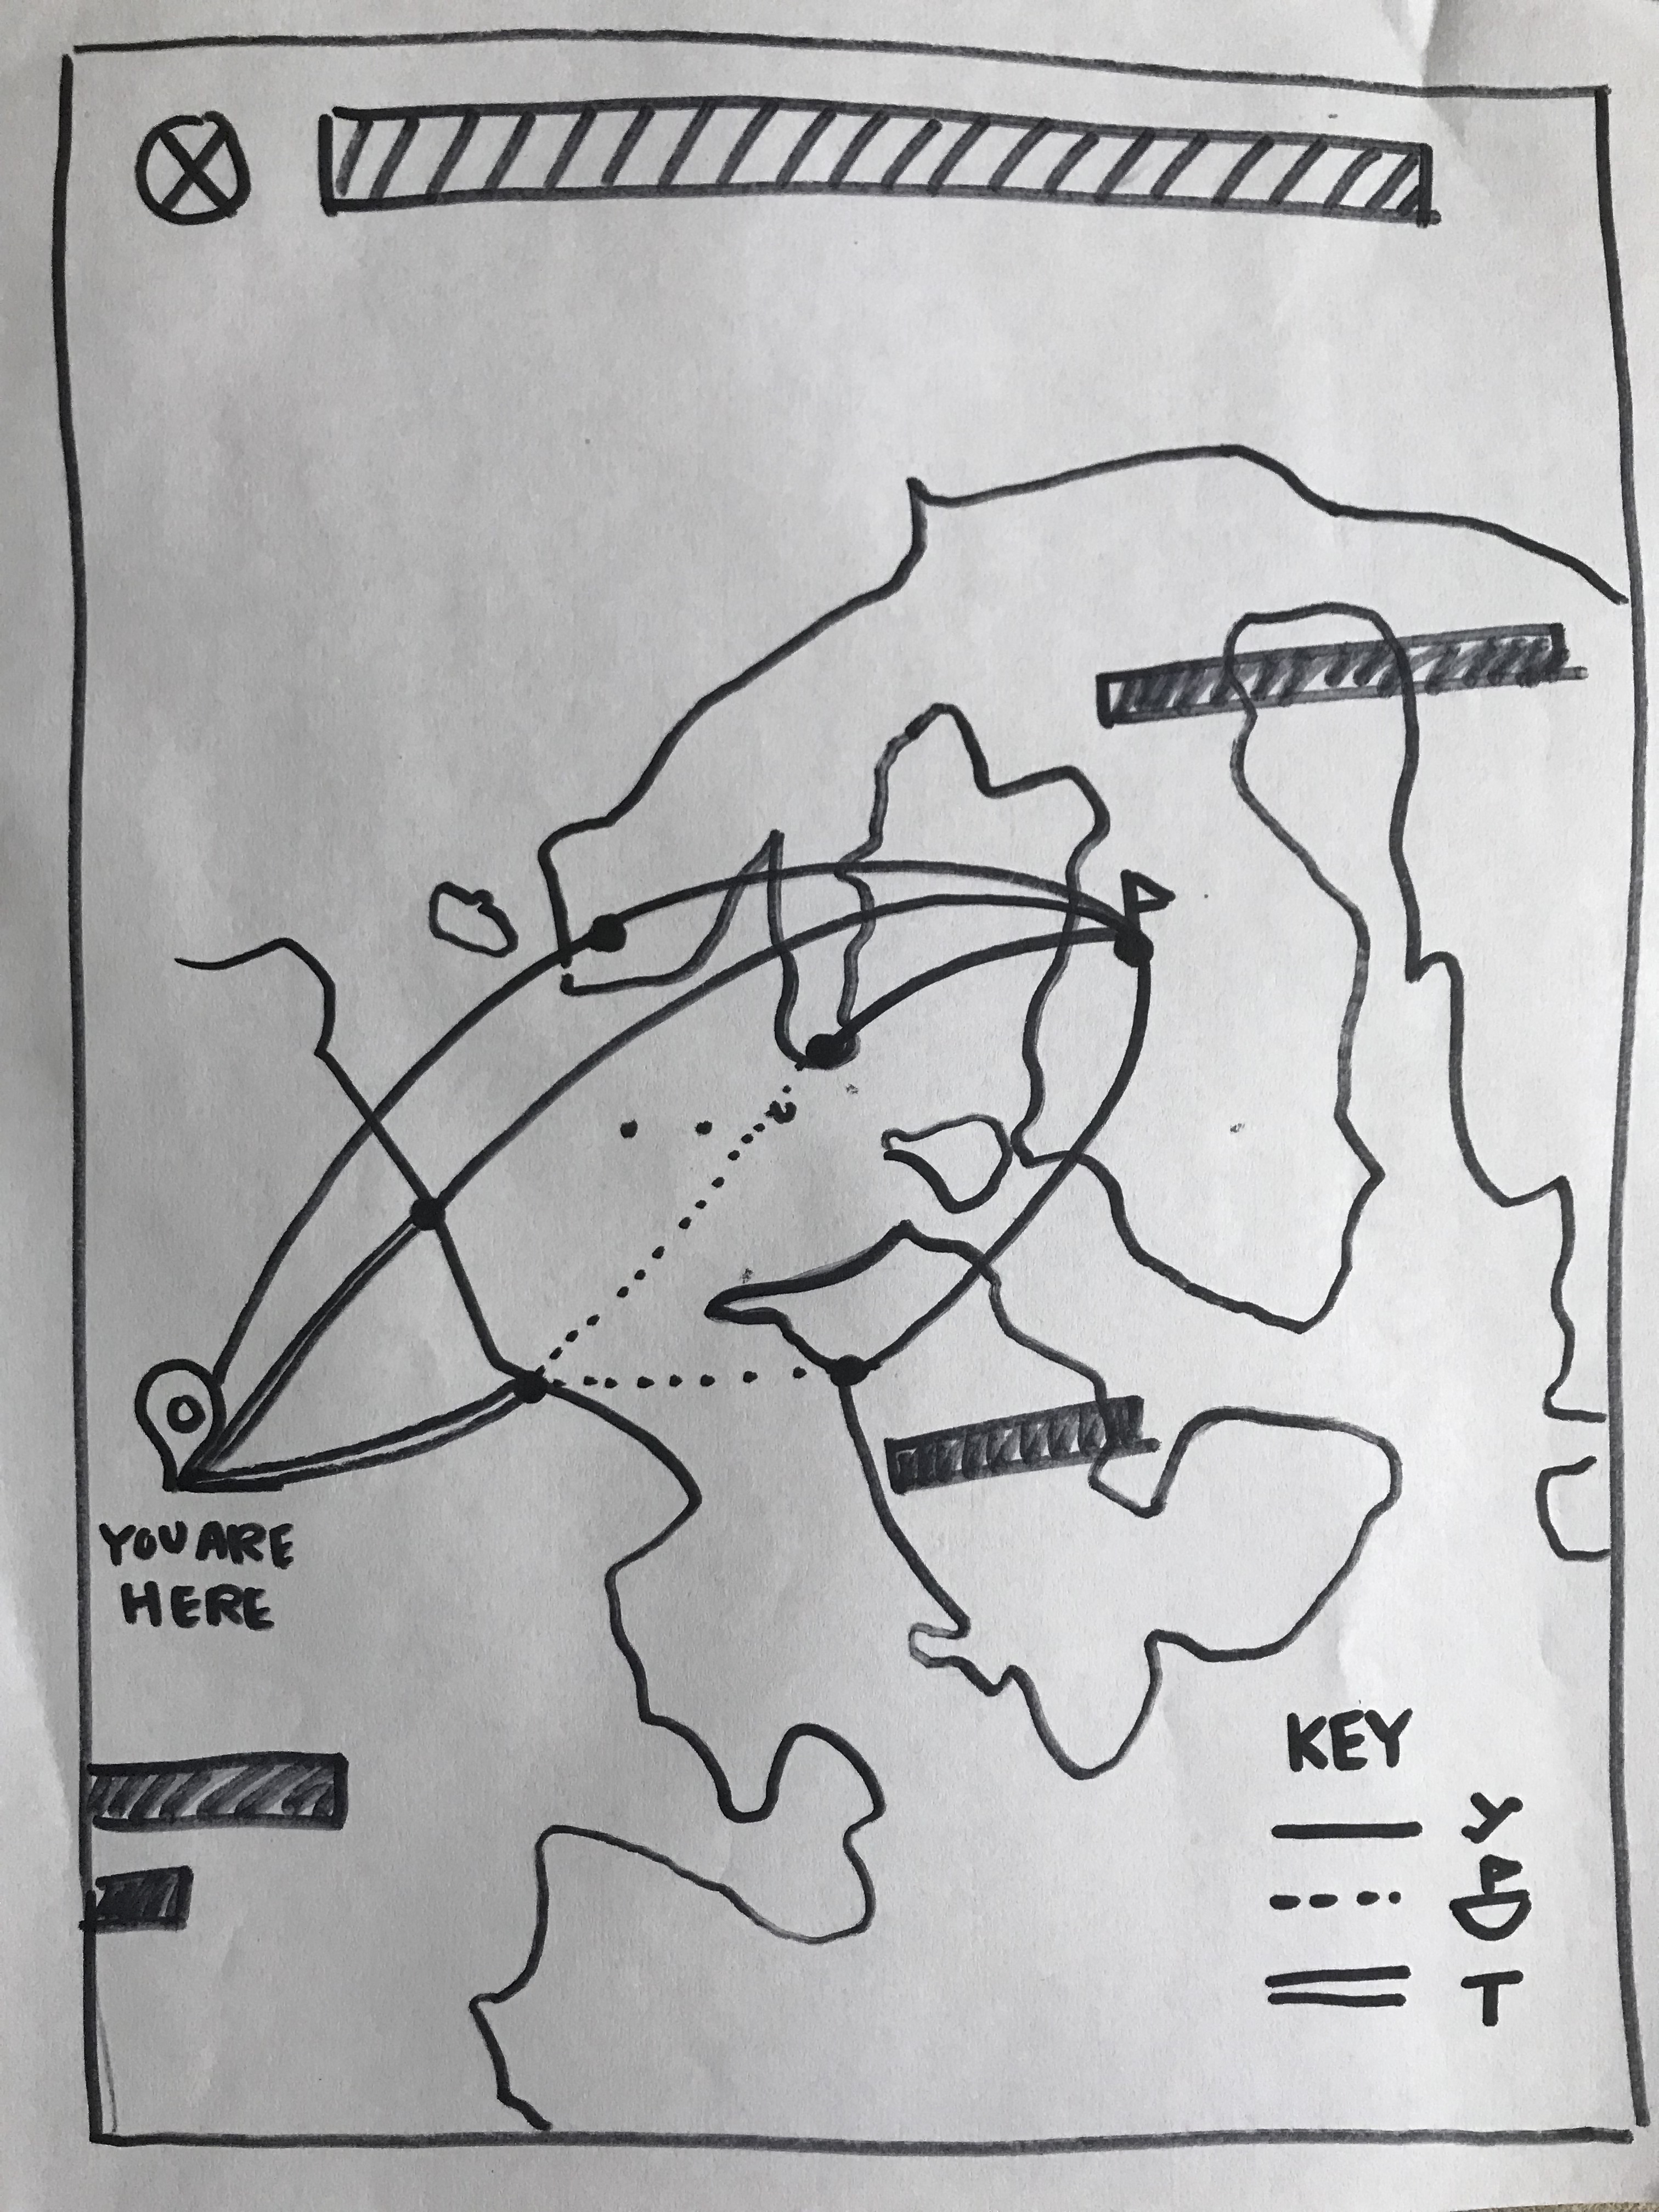 YOU ARE
HERE
KEY
T